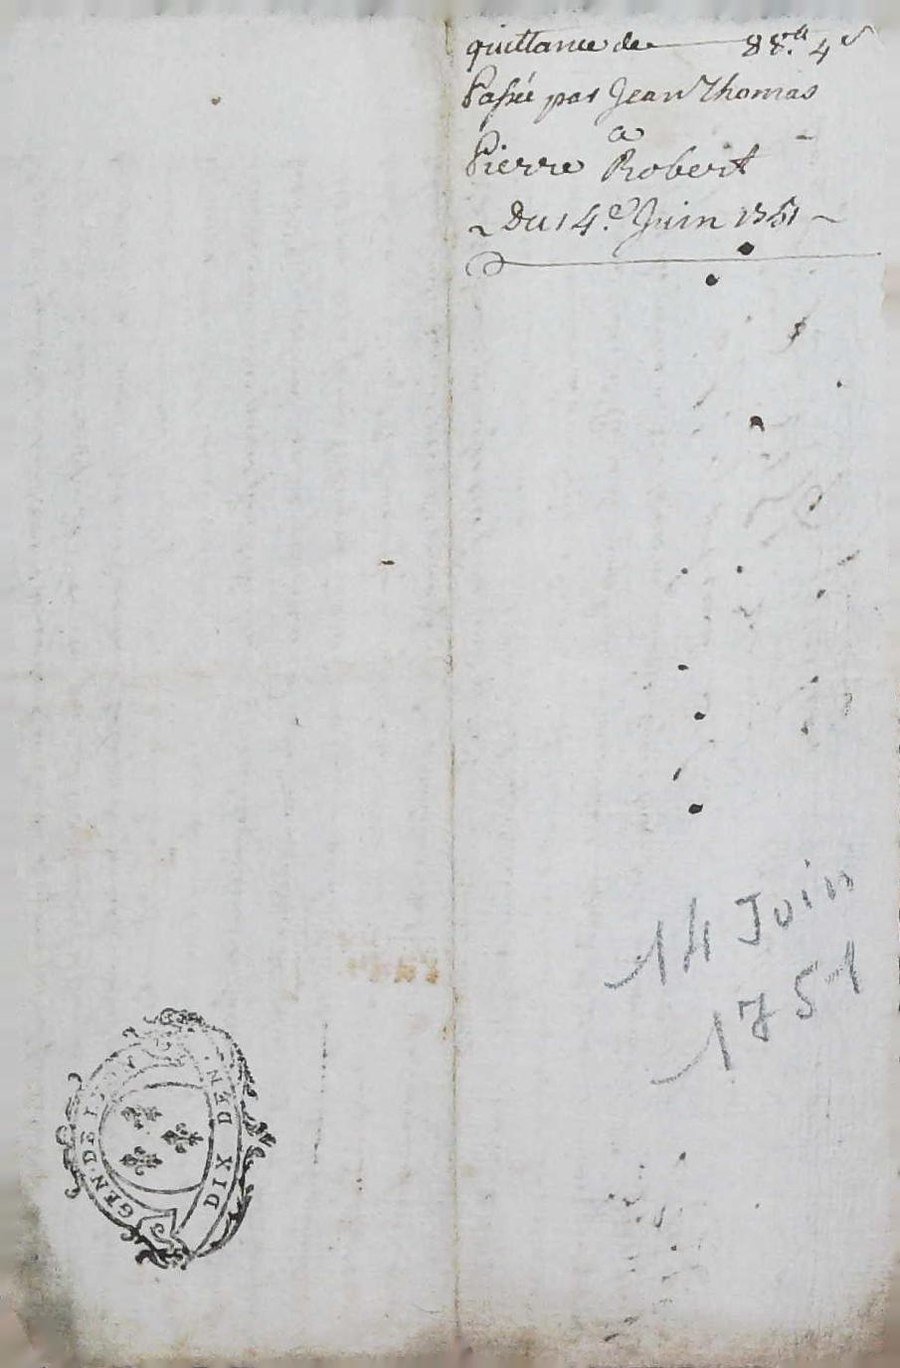 quittance de 88.tt 4 s
Passée par Jean Thomas
a
Pierre Robert
~ Du 14.e Juin 1751 ~
14 Juin
1751
GEN. DE
DIX DEN.